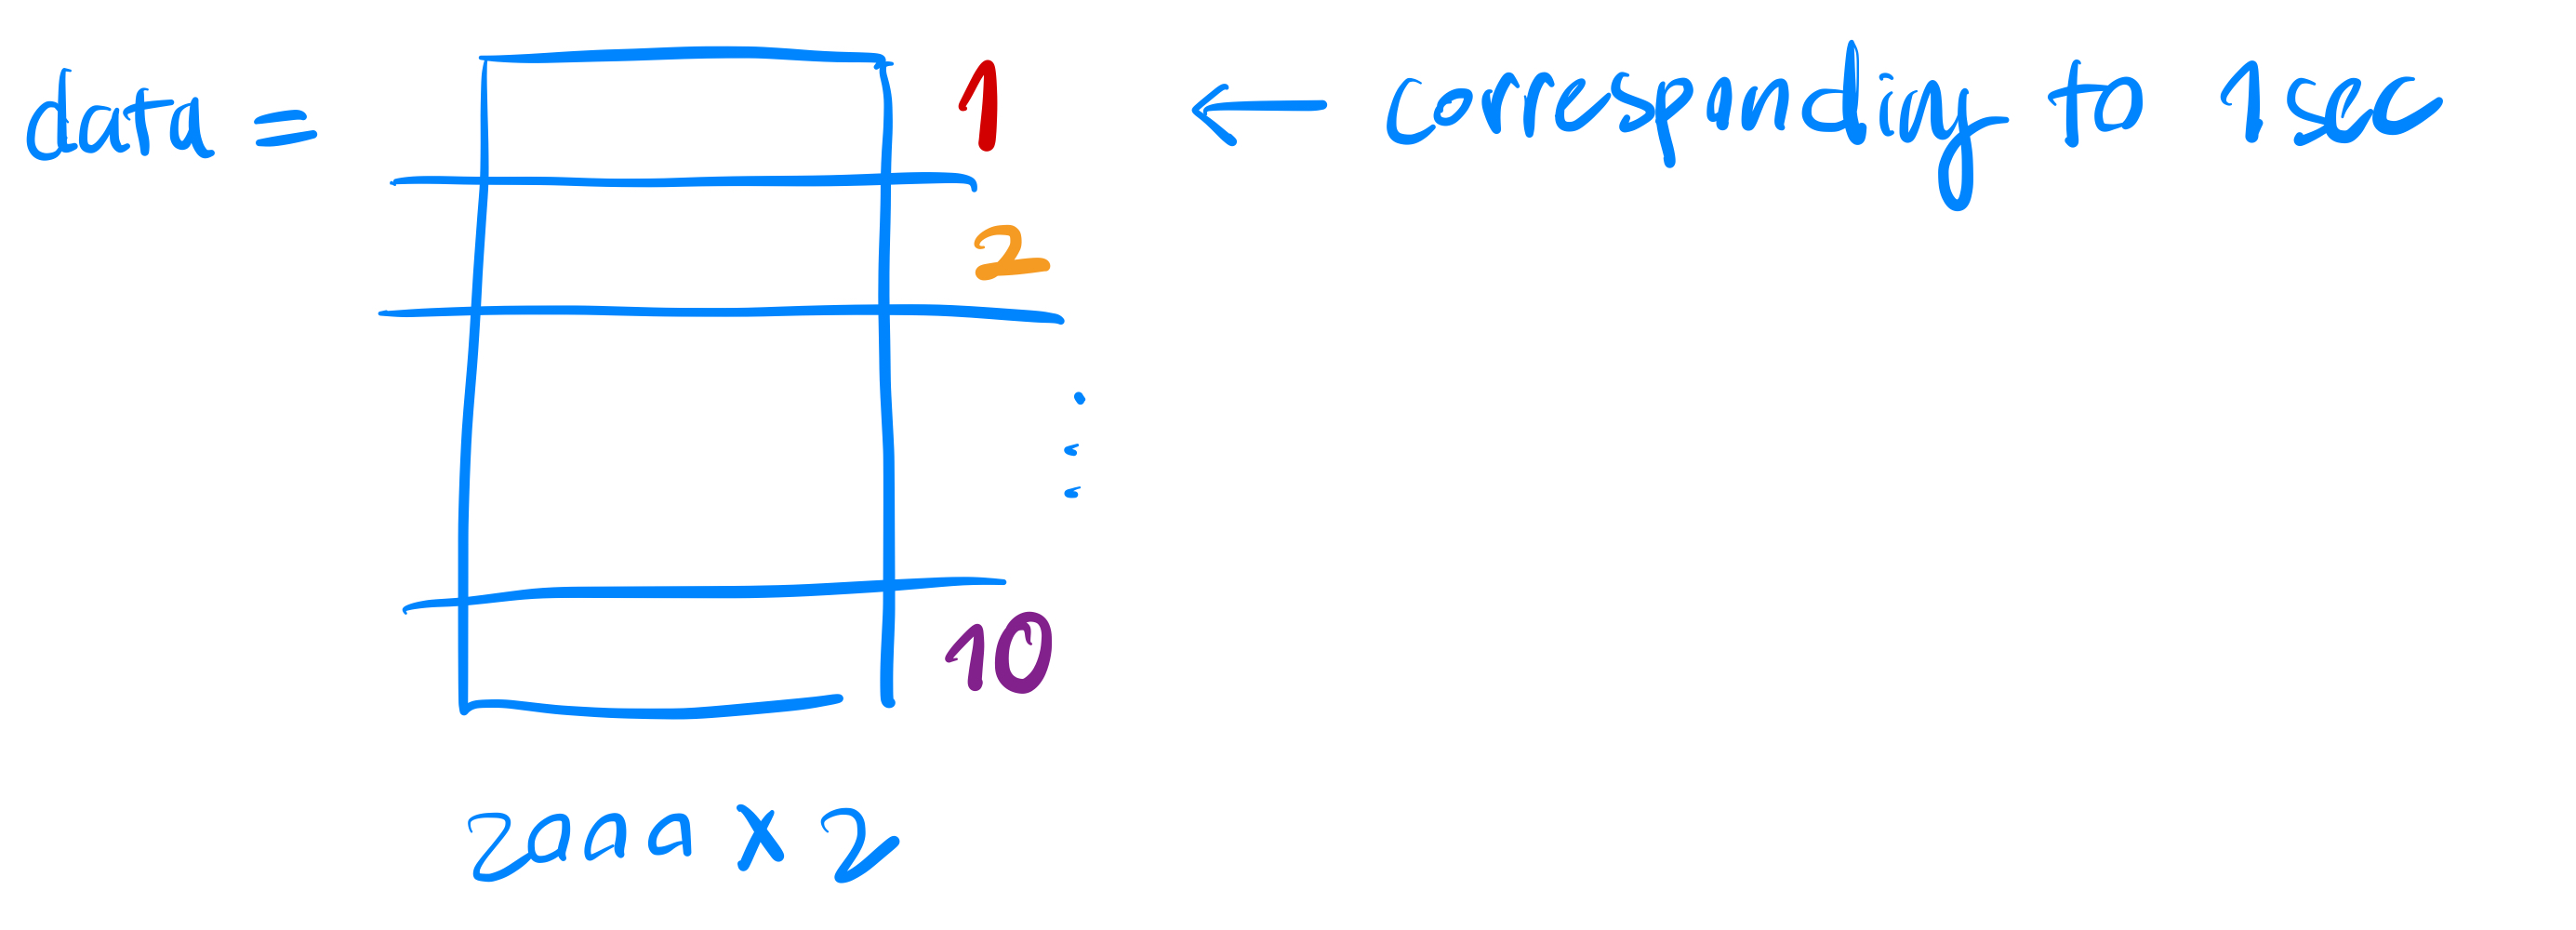 data =
1 ← corresponding to 1 sec
2
10
2000 x 2